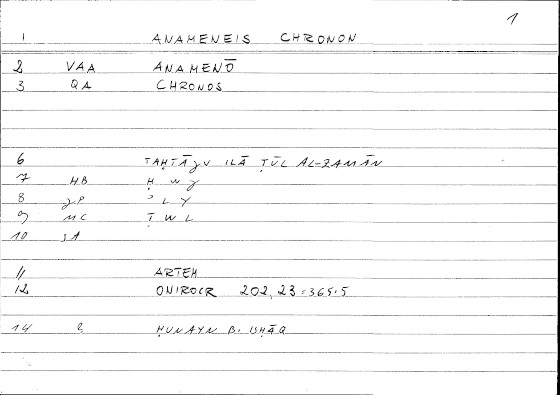 1
1 ANAMENEIS CHRONON
2 VAA ANAMENŌ
3 QA CHRONOS
6 TAḤTĀǦU ILĀ ṬŪL AL-ZAMĀN
7 HB Ḥ W Ǧ
8 JP ʾ L Y
9 MC Ṭ W L
10 JA
11 ARTEM
12 ONIROCR 202,23 = 365.5
14 2 ḤUNAYN B. ISḤĀQ